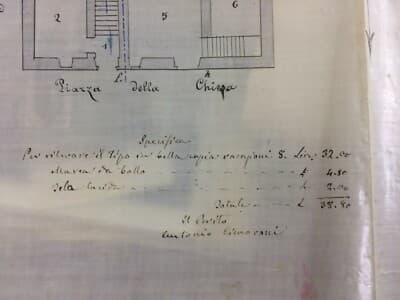 2
5
6
1
L.
4
Piazza della Chiesa
Specifica
Per rilevare il tipo in bella copia vacazioni 8. Lire 32.00
Marca da bollo £ 4.80
Tela lucida £ 2.00
Totale £ 38.80
Il Perito
Antonio